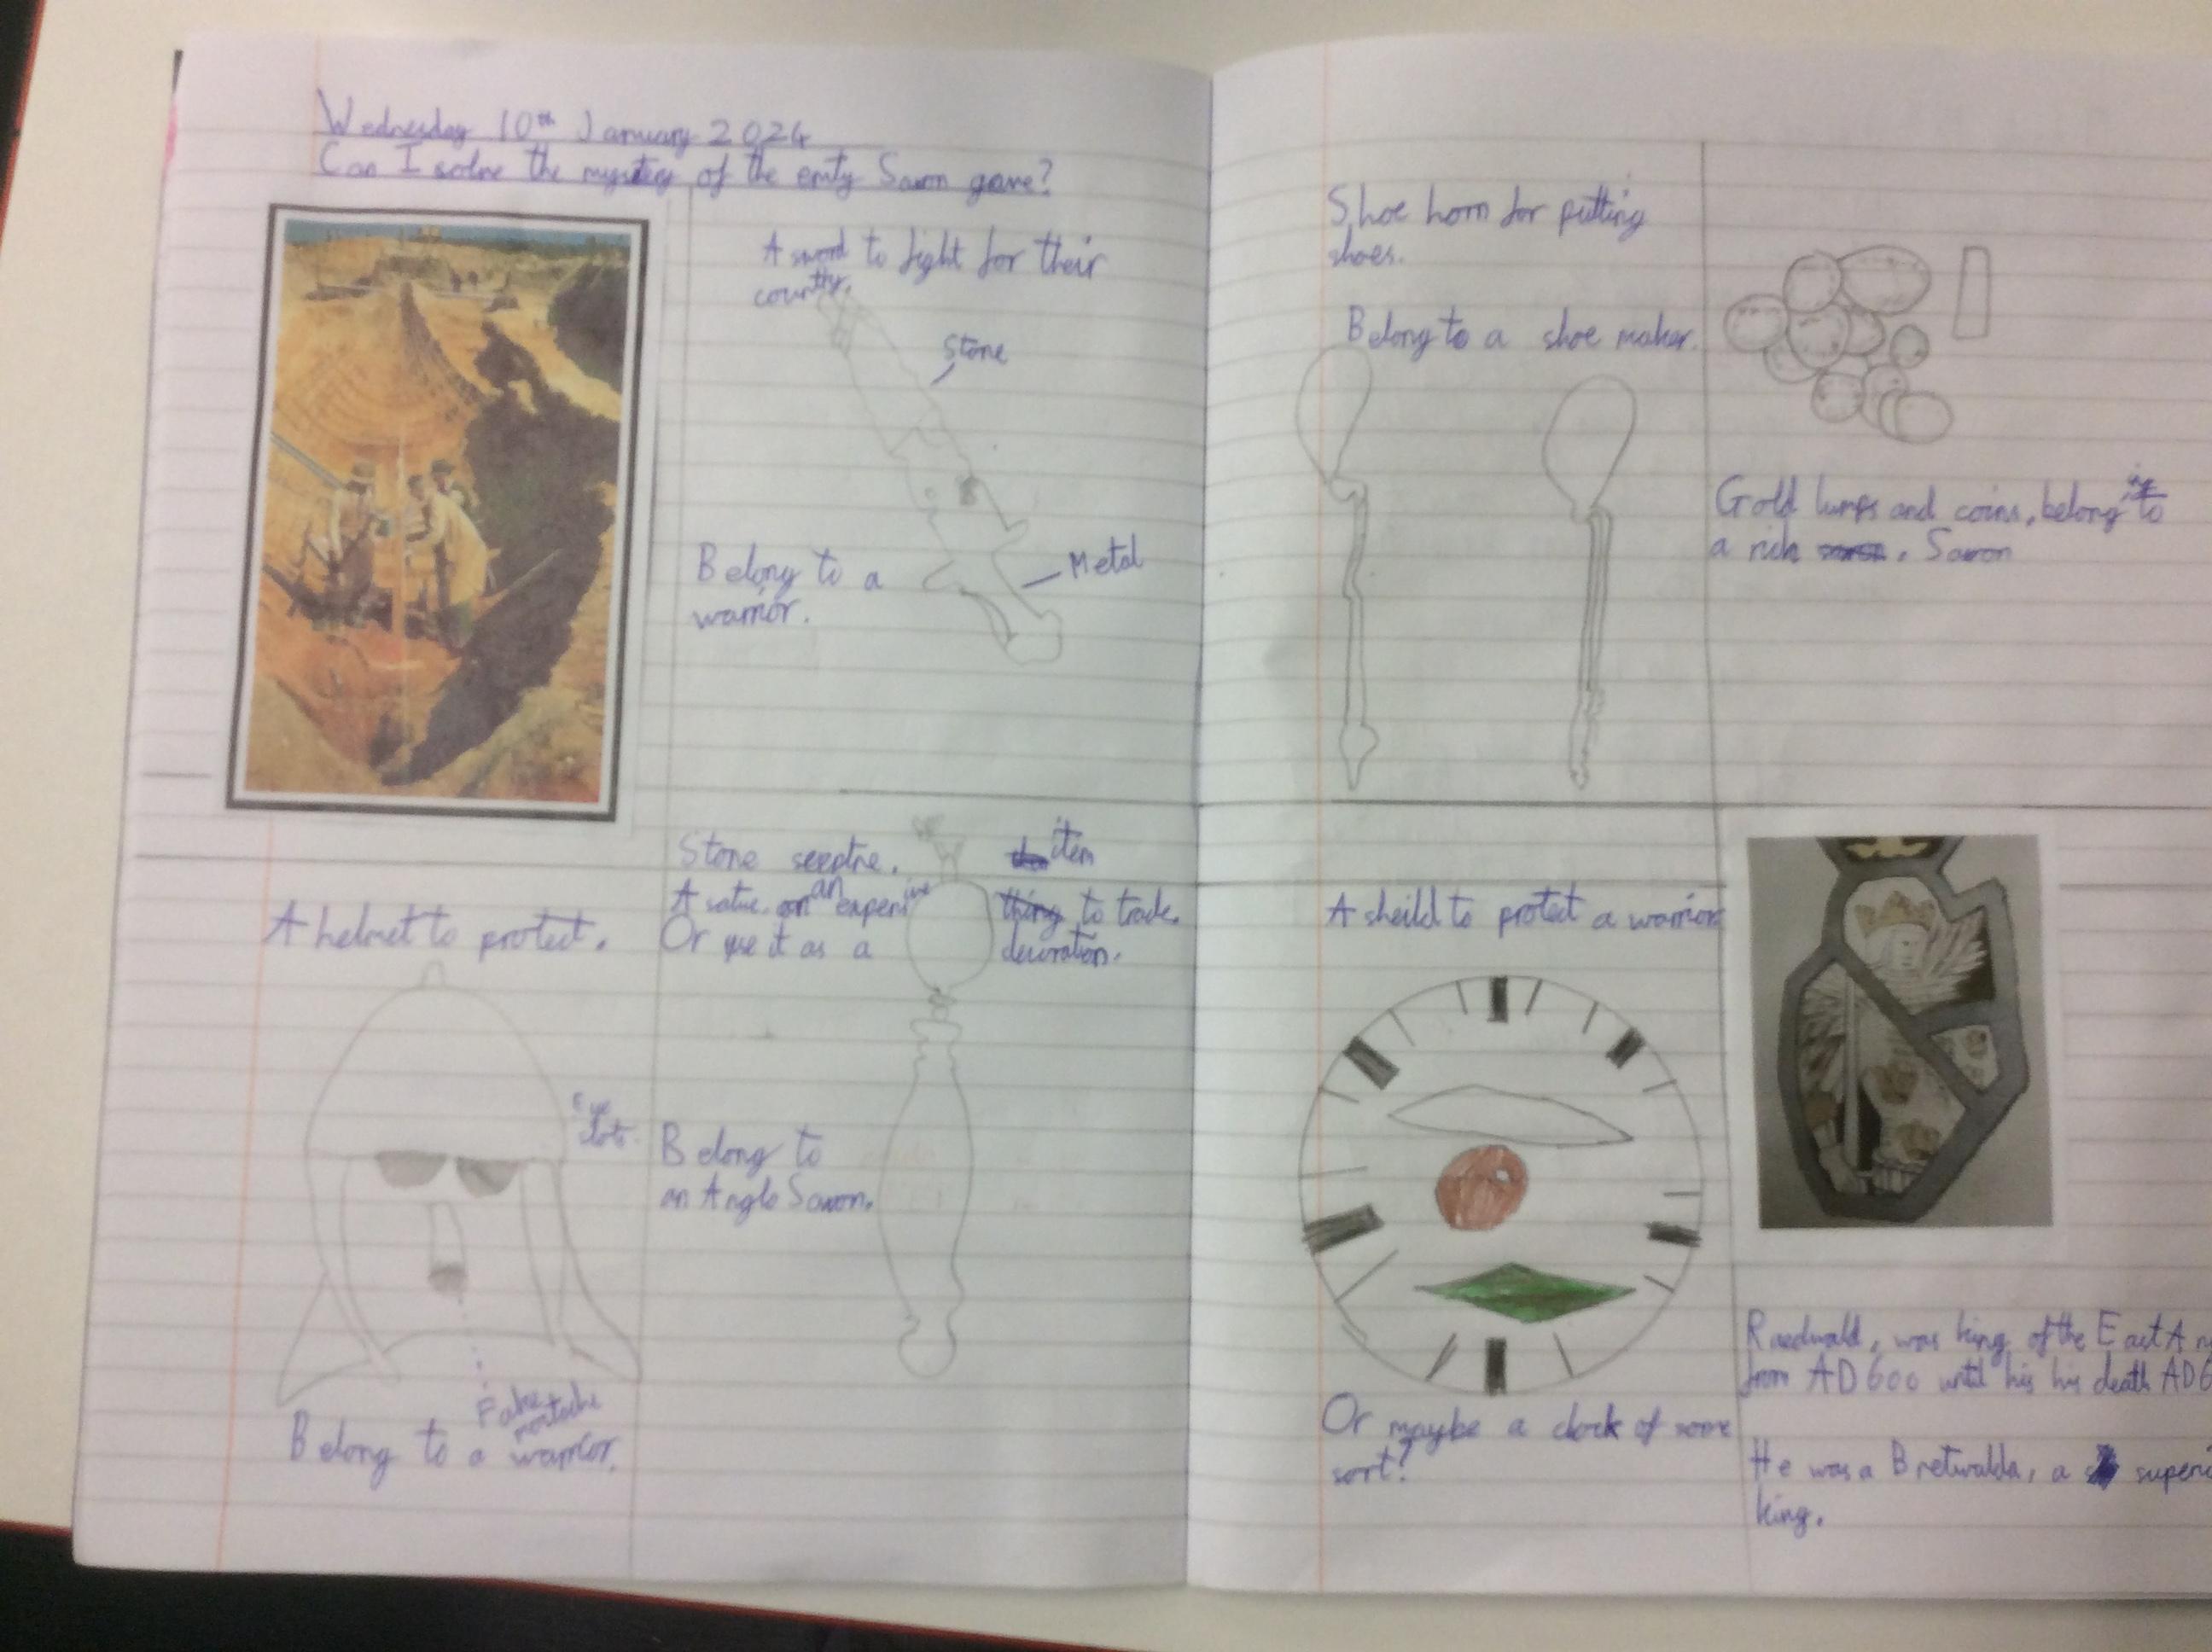 Wednesday 10th January 2024
Can I solve the mystery of the emty Saxon grave?
A sword to fight for their
country.
Stone
Belong to a
warrior.
Metal
A helmet to protect.
Eye
slots.
Fake
Belong to a warrior.
Stone sceptre. item
A statue. an expensive thing to trade.
Or use it as a decoration.
Belong to
an Anglo Saxon.
Shoe horn for putting
shoes.
Belong to a shoe maker.
Gold lumps and coins, belonging to
a rich . Saxon
A sheild to protect a warrior
Or maybe a clock of some
sort?
Raedwald, was king of the East An
from AD 600 until his his death AD 6
He was a Bretwalda, a superi
king.